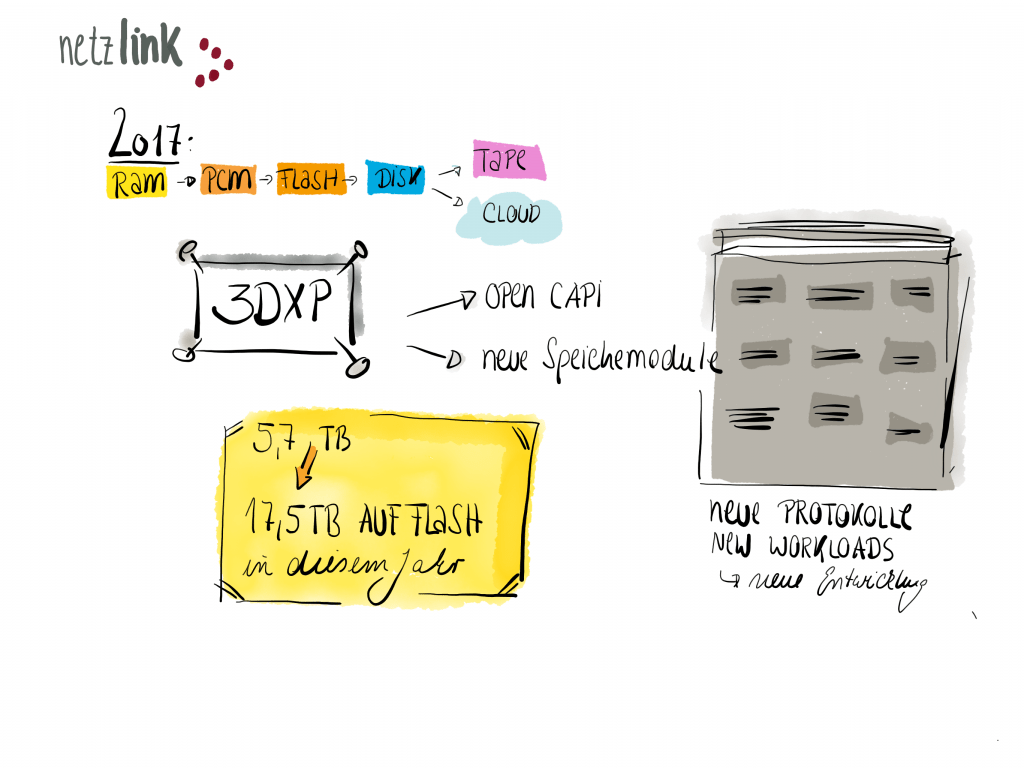 netzlink
2017:
RAM PCM FLASH DISK TAPE
CLOUD
3DXP
OPEN CAPI
neue Speichemodule
5,7 TB
17,5 TB AUF FLASH
in diesem Jahr
neue PROTOKOLLE
NEW WORKLOADS
neue Entwicklung